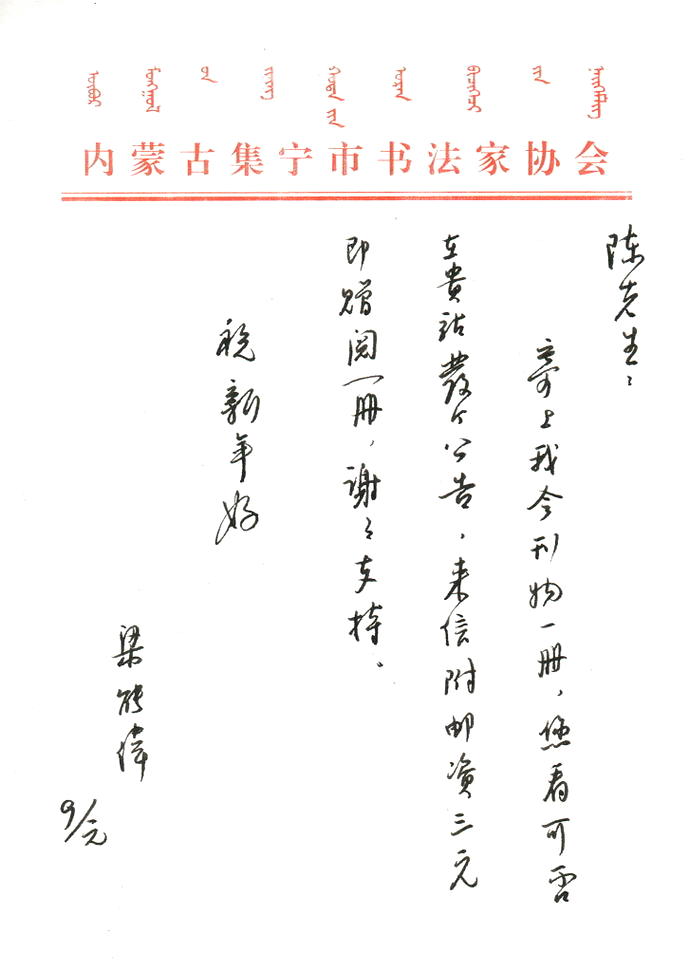 内蒙古集宁市书法家协会
陈先生：
寄上我会刊物一册，您看可否
在貴站發个公告，来信附邮资三元
即赠阅一册，谢々支持。
祝新年好
梁能偉
9/元